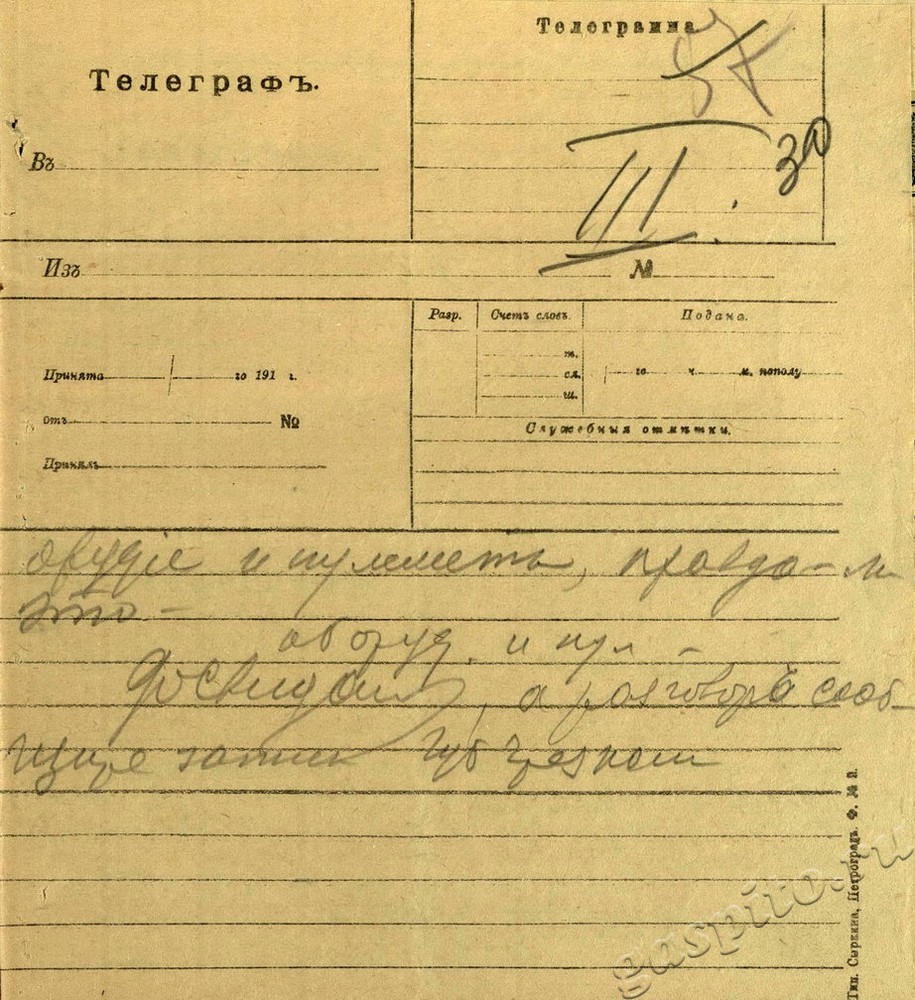 Телеграмма
57
Телеграфъ.
30
Въ
III.
Изъ
№
Разр.
Счетъ словъ.
Подана.
т.
Принята го 191 г.
сл.
го ч. м. пополу
ш.
отъ №
Служебныя отмѣтки.
Принялъ
орудіе и пулеметы, правда-ли
это-
об оруд. и пул -
Досвидания, а разговоръ сооб-
щите
Тип. Сыркина, Петроградъ. Ф. № 2.
gaspito.ru